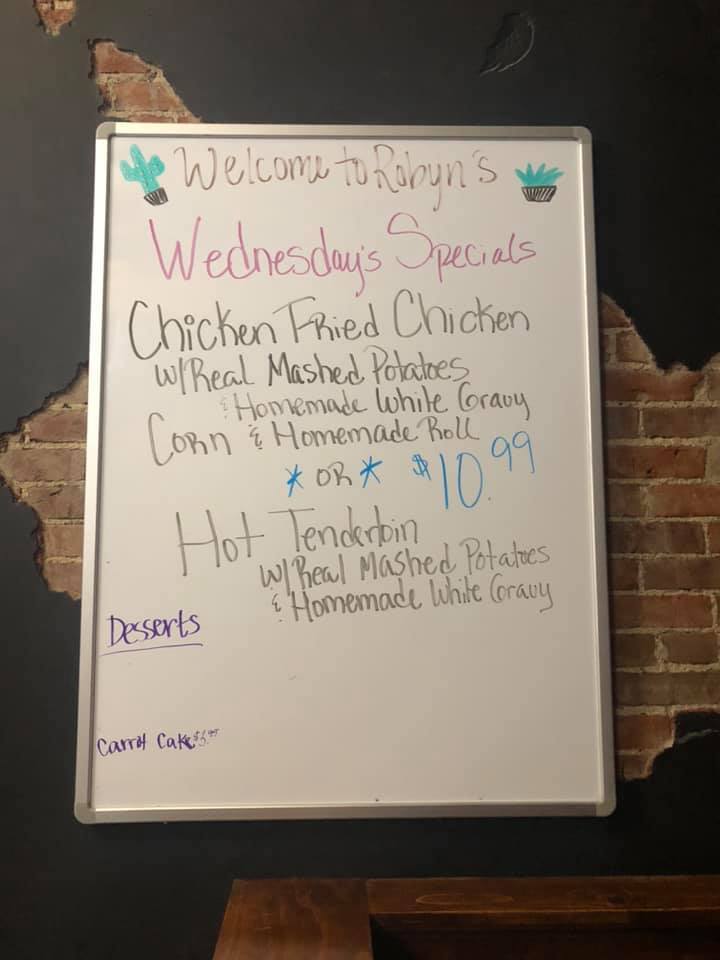 Welcome to Robyn's
Wednesday's Specials
Chicken Fried Chicken
w/Real Mashed Potatoes
& Homemade White Gravy
Corn & Homemade Roll
* OR * $10.99
Hot Tenderloin
w/Real Mashed Potatoes
& Homemade White Gravy
Desserts
Carrot Cake